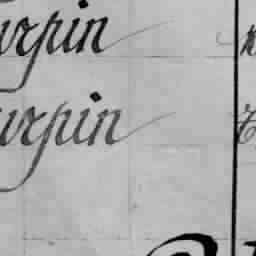 urpin
urpin